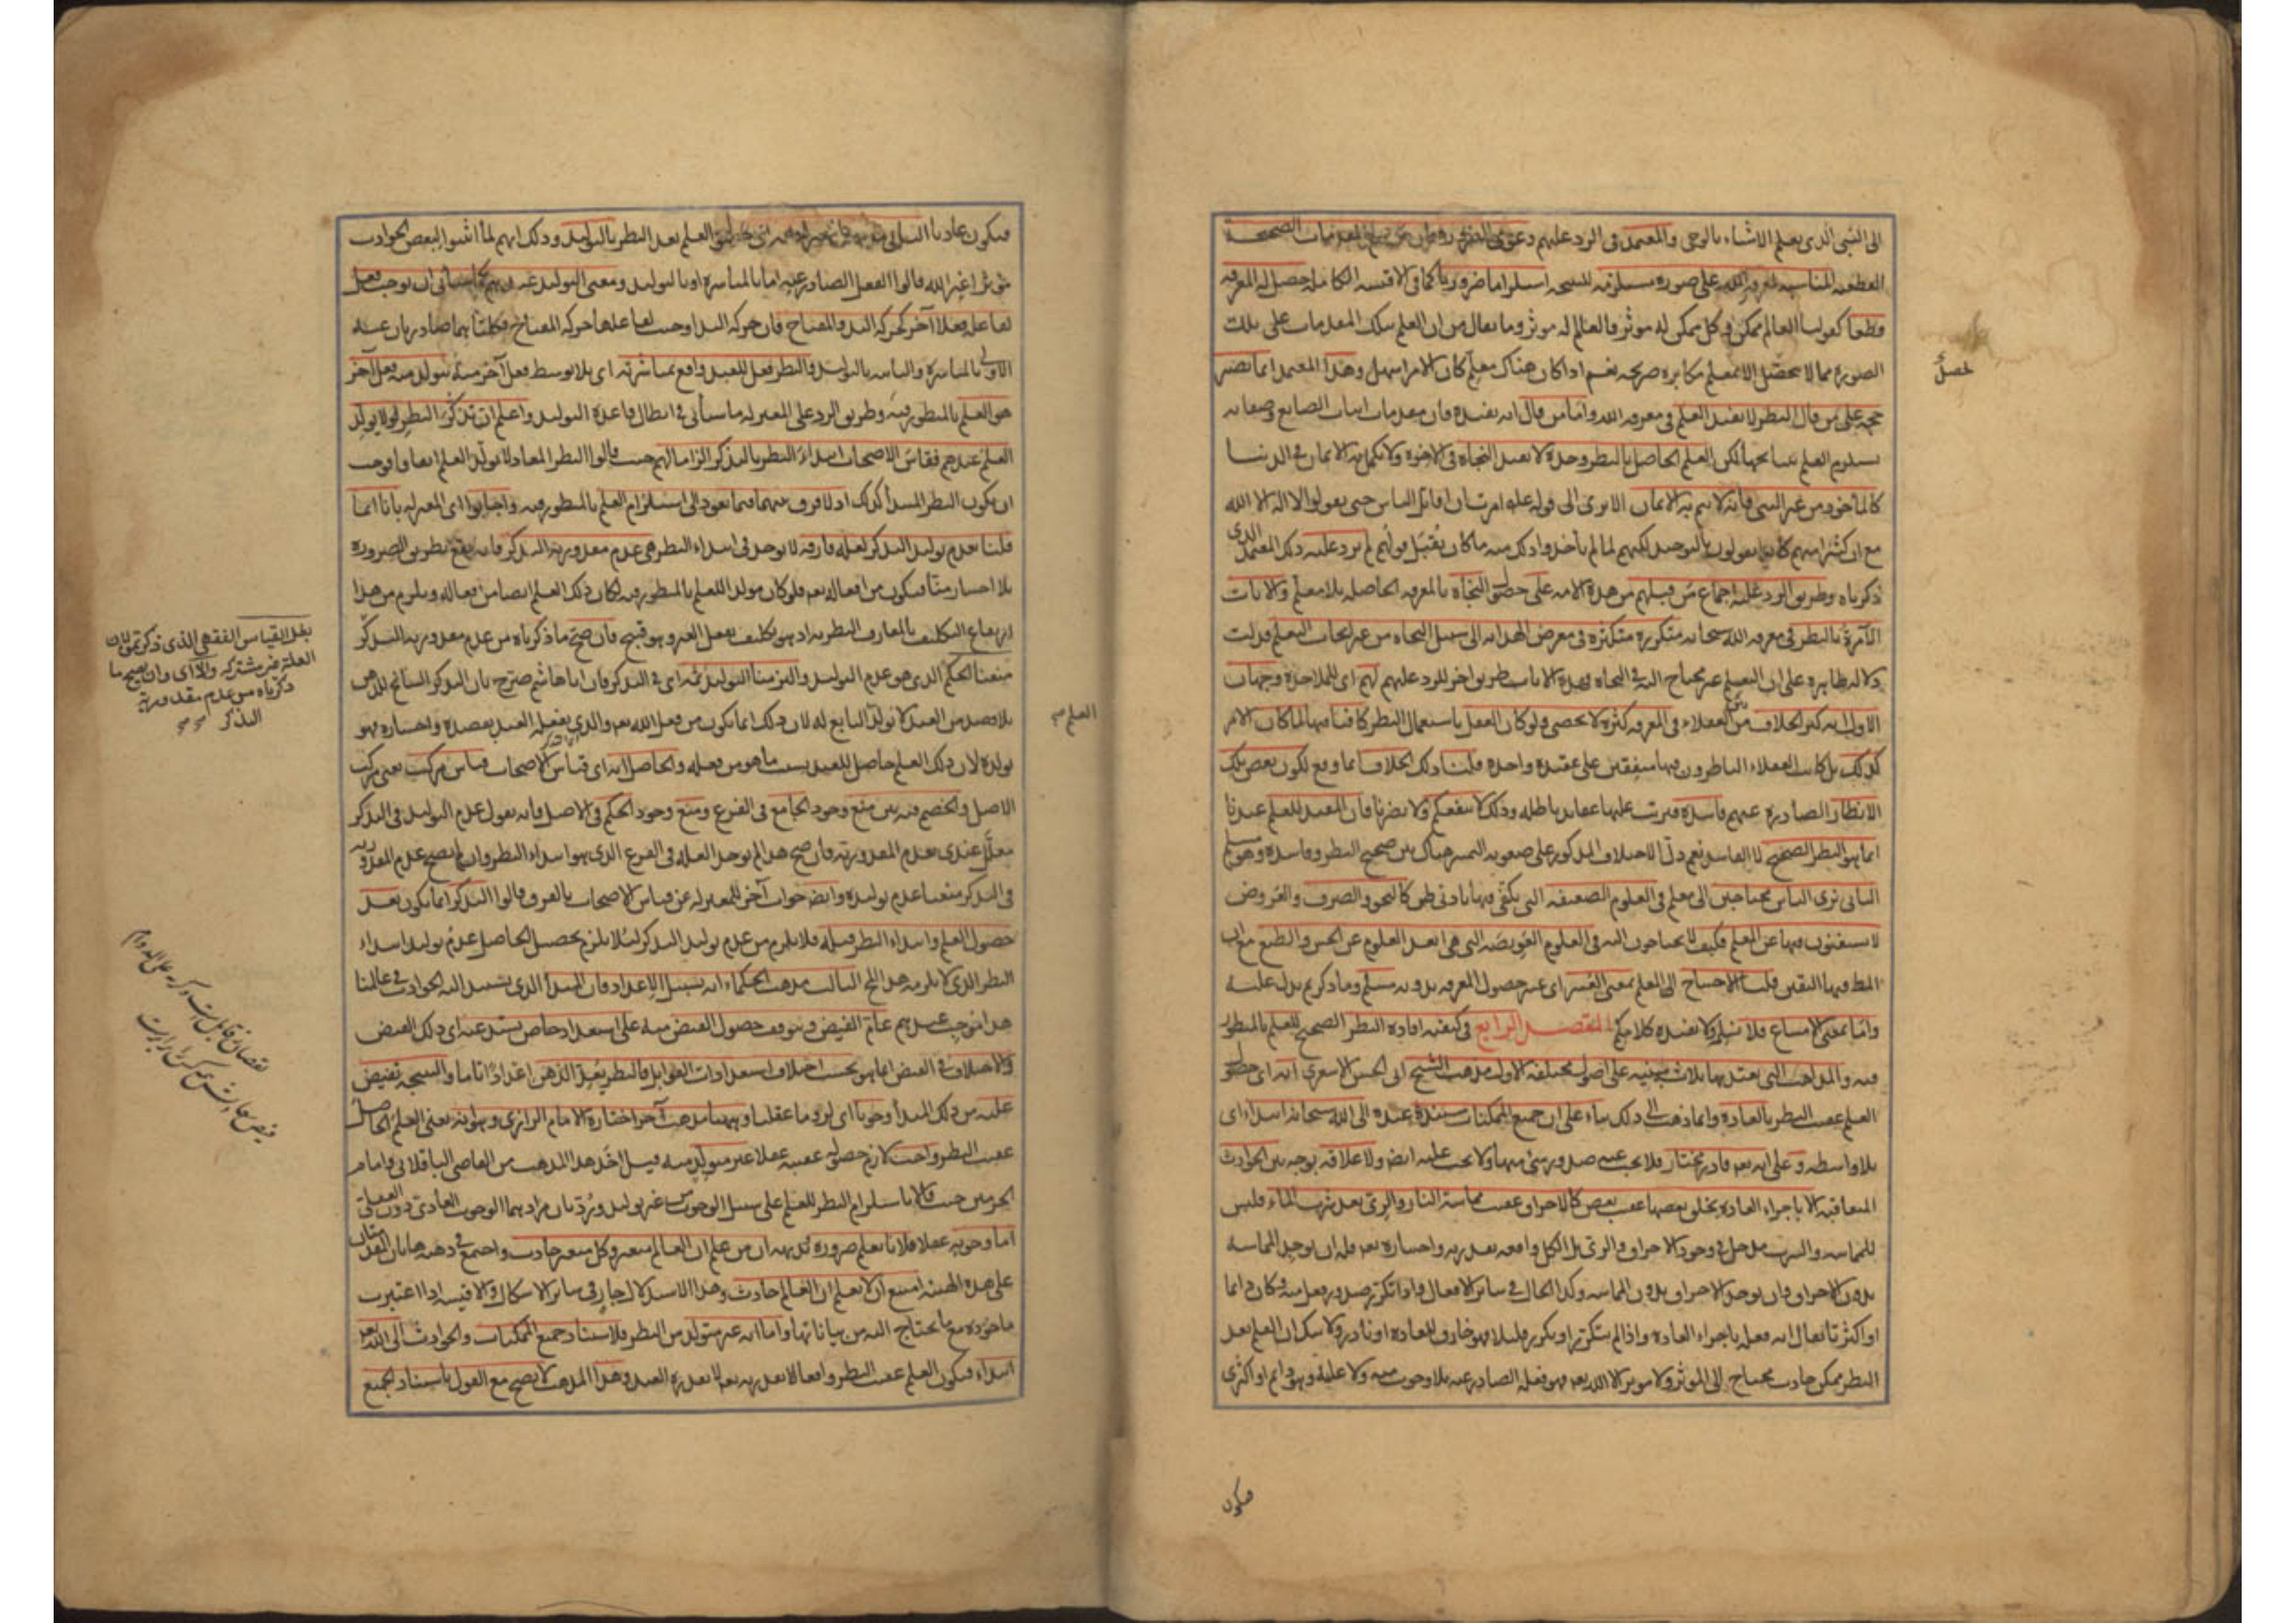 الى النبى الذى يعلم الاشياء بالوحى والمعتمد فى الرد عليهم دعوى الضرورة فان من علم المقدمات الصحيحة
القطعية المناسبة لمعرفة الله على صورة مستلزمة للنتيجة استلزاما ضروريا كما فى الاقيسة الكاملة حصل له المعرفة
قطعا كقولنا العالم ممكن وكل ممكن له مؤثر فالعالم له مؤثر وما يقال من ان العلم بتلك المقدمات على تلك
الصورة مما لا يحصل الا بمعلم مكابرة صريحة نعم اذا كان هناك معلم كان الامر اسهل وهذا المعتمد انما تصير
حجة على من قال النظر لا يفيد العلم فى معرفة الله واما من قال انه يفيده فان مقدمات اثبات الصانع وصفاته
يستلزم العلم بنتائجها لكن العلم الحاصل بالنظر وحده لا يفيد النجاة فى الاخرة ولا يكمل به الايمان فى الدنيا
كالماخوذ من غير النبى فانه لا يتم به الايمان الا ترى الى قوله عليه امرت ان اقاتل الناس حتى يقولوا لا اله الا الله
مع ان كثيرا منهم كانوا يقولون بالتوحيد لكنهم لما لم ياخذوا ذلك منه ما كان يقبل قولهم لم يرد عليه ذلك المعتمد الذى
ذكرناه وطريق الرد عليه اجماع من قبلهم من هذه الامة على حصول النجاة بالمعرفة الحاصلة بلا معلم والايات
الآمرة بالنظر فى معرفة الله سبحانه متكررة متكثرة فى معرض الهداية الى سبيل النجاة من غير ايجاب التعلم فدلت
دلالة ظاهرة على ان التعليم غير محتاج اليه فى النجاة وهذه الايات طريق اخر للرد عليهم لهم اى للملاحدة وجهان
الاول انه كثر الخلاف بين العقلاء فى المعرفة كثرة لا يحصى ولو كان العقل باستعمال النظر كافيا فيها لما كان الامر
كذلك بل كانت العقلاء الناظرون فيها متفقين على عقيدة واحدة قلنا ذلك الخلاف انما وقع لكون بعض تلك
الانظار الصادرة عنهم فاسدة فترتب عليها عقايد باطلة وذلك لا ينفعكم ولا يضرنا فان المفيد للعلم عندنا
انما هو النظر الصحيح لا الفاسد نعم دل الاختلاف المذكور على صعوبة التمييز هناك بين صحيح النظر وفاسده وهو مسلم
الثانى نرى الناس محتاجين الى معلم فى العلوم الضعيفة التى يكفى فيها بادنى ظن كالنحو والصرف والعروض
لا يستغنون فيها عن المعلم فكيف لا يحتاجون اليه فى العلوم العويصة التى هى ابعد العلوم عن الحس والطبع مع ان
المط فيها اليقين قلنا الاحتياج الى المعلم بمعنى العسر اى عسر حصول المعرفة بدونه مسلم وما ذكرتم يدل عليه
واما بمعنى الامتناع فلا نسلم ولا يفيده كلامكم المقصد الرابع فى كيفية افادة النظر الصحيح للعلم بالمنظور
فيه والمذاهب التى يعتد بها ثلاث مبنية على اصول مختلفة الاول مذهب الشيخ ابى الحسن الاشعرى انه اى حصول
العلم عقيب النظر بالعادة وانما ذهب الى ذلك بناء على ان جميع الممكنات مستندة عنده الى الله سبحانه ابتداء اى
بلا واسطة وعلى انه تعم قادر مختار فلا يجب عنه صدور شئ منها ولا يجب عليه ايضا ولا علاقة بوجه بين الحوادث
المتعاقبة الا باجراء العادة بخلق بعضها عقيب بعض كالاحراق عقيب مماسة النار والرى بعد شرب الماء فليس
للمماسة والشرب مدخل فى وجود الاحراق والرى بل الكل واقعة بقدرته واختياره تعم فله ان يوجد المماسة
بدون الاحراق وان يوجد الاحراق بدون المماسة وكذا الحال فى سائر الافعال فاذا تكرر صدور فعل منه وكان دائما
او اكثريا يقال انه فعله باجراء العادة واذا لم يتكرر او تكرر قليلا فهو خارق للعادة او نادر ولا شك ان العلم بعد
النظر ممكن حادث محتاج الى المؤثر ولا مؤثر الا الله تعم فهو فعله الصادر عنه بلا وجوب منه ولا عليه وهو دائم او اكثرى
فيكون
فيكون عاديا الثانى مذهب المعتزلة انه حصول العلم بعد النظر بالتوليد وذلك انهم لما اثبتوا لبعض الحوادث
مؤثرا غير الله قالوا الفعل الصادر عنه اما بالمباشرة او بالتوليد ومعنى التوليد عندهم كما سيأتى ان يوجب فعل
لفاعله فعلا آخر كحركة اليد والمفتاح فان حركة اليد اوجبت لفاعلها حركة المفتاح فكلتاهما صادرتان عنه
الاولى بالمباشرة والثانية بالتوليد والنظر فعل للعبد واقع بمباشرته اى بلا توسط فعل آخر منه يتولد منه فعل آخر
هو العلم بالمنظور فيه وطريق الرد على المعتزلة ما سيأتى فى ابطال قاعدة التوليد واعلم ان تذكر النظر لا يولد
العلم عندهم فقاس الاصحاب ابتداء النظر بالتذكر الزاما لهم حيث قالوا النظر المعاد لا يولد العلم اتفاقا فوجب
ان يكون النظر المبتدأ كذلك اذ لا فرق بينهما فيما يعود الى استلزام العلم بالمنظور فيه واجابوا اى المعتزلة بانا انما
قلنا بعدم توليد التذكر لعلة فارقة لا توجد فى ابتداء النظر هى عدم مقدورية التذكر فانه يقع بطريق الضرورة
بلا اختيار منا فيكون من افعاله تعم فلو كان مولدا للعلم بالمنظور فيه لكان ذلك العلم ايضا من افعاله ويلزم من هذا
ارتفاع التكليف بالمعارف النظرية اذ هو تكليف بفعل الغير وهو قبيح فان صح ما ذكرناه من عدم مقدورية التذكر
منعنا الحكم الذى هو عدم التوليد والتزمنا التوليد ثمه اى فى التذكر فان ابا هاشم صرح بان التذكر السانح للذهن
بلا قصد من العبد لا يولد التابع له لان ذلك انما يكون من فعل الله تعم والذى يفعله العبد بقصده واختياره فهو
يولده لان ذلك العلم حاصل للعبد بسبب ما هو من فعله والحاصل انه اى قياس الاصحاب قياس مركب يعنى مركب
الاصل والخصم فيه بين منع وجود الجامع فى الفرع ومنع وجود الحكم فى الاصل فانه يقول عدم التوليد فى التذكر
معلل عندى بعدم المقدورية فان صح هذا لم توجد العلة فى الفرع الذى هو ابتداء النظر وان لم يصح عدم المقدورية
فى التذكر منعنا عدم توليده وايضا جواب آخر للمعتزلة عن قياس الاصحاب بالفرق قالوا التذكر انما يكون بعد
حصول العلم وابتداء النظر قبله فلا يلزم من عدم توليد التذكر لئلا يلزم تحصيل الحاصل عدم توليد ابتداء
النظر الذى لا يلزمه هذا المح الثالث مذهب الحكماء انه بسبيل الاعداد فان المبدأ الذى يستند اليه الحوادث فى عالمنا
هذا موجب عندهم عام الفيض ويتوقف حصول الفيض منه على استعداد خاص يستدعيه اى ذلك الفيض
والاختلاف فى الفيض انما هو بحسب اختلاف استعدادات القوابل فالنظر يعد الذهن اعدادا تاما والنتيجة تفيض
عليه من ذلك المبدأ وجوبا اى لزوما عقليا وههنا مذهب آخر اختاره الامام الرازى وهو انه يعنى العلم الحاصل
عقيب النظر واجب لازم حصوله عقيبه عقلا غير متولد منه قيل اخذ هذا المذهب من القاضى الباقلانى وامام
الحرمين حيث قالا باستلزام النظر للعلم على سبيل الوجوب من غير توليد ورد بان مرادهما الوجوب العادى دون العقلى
اما وجوبه عقلا فلانا نعلم ضرورة وبديهة ان من علم ان العالم متغير وكل متغير حادث واجتمع فى ذهنه هاتان المقدمتان
على هذه الهيئة امتنع ان لا يعلم ان العالم حادث وهذا الاستدلال جار فى سائر الاشكال والاقيسة اذا اعتبرت
ماخوذة مع ما يحتاج اليه من بياناتها واما انه غير متولد من النظر فلاستناد جميع الممكنات والحوادث الى الله تعم
ابتداء فيكون العلم عقيب النظر واقعا لا بقدرته تعم لا بقدرة العبد وهذا المذهب لا يصح مع القول باستناد الجميع
العلم صح
القياس الفقهى الذى ذكرتموه لان
العلة غير مشتركة والا اى وان لم يصح ما
ذكرناه من عدم مقدورية
التذكر